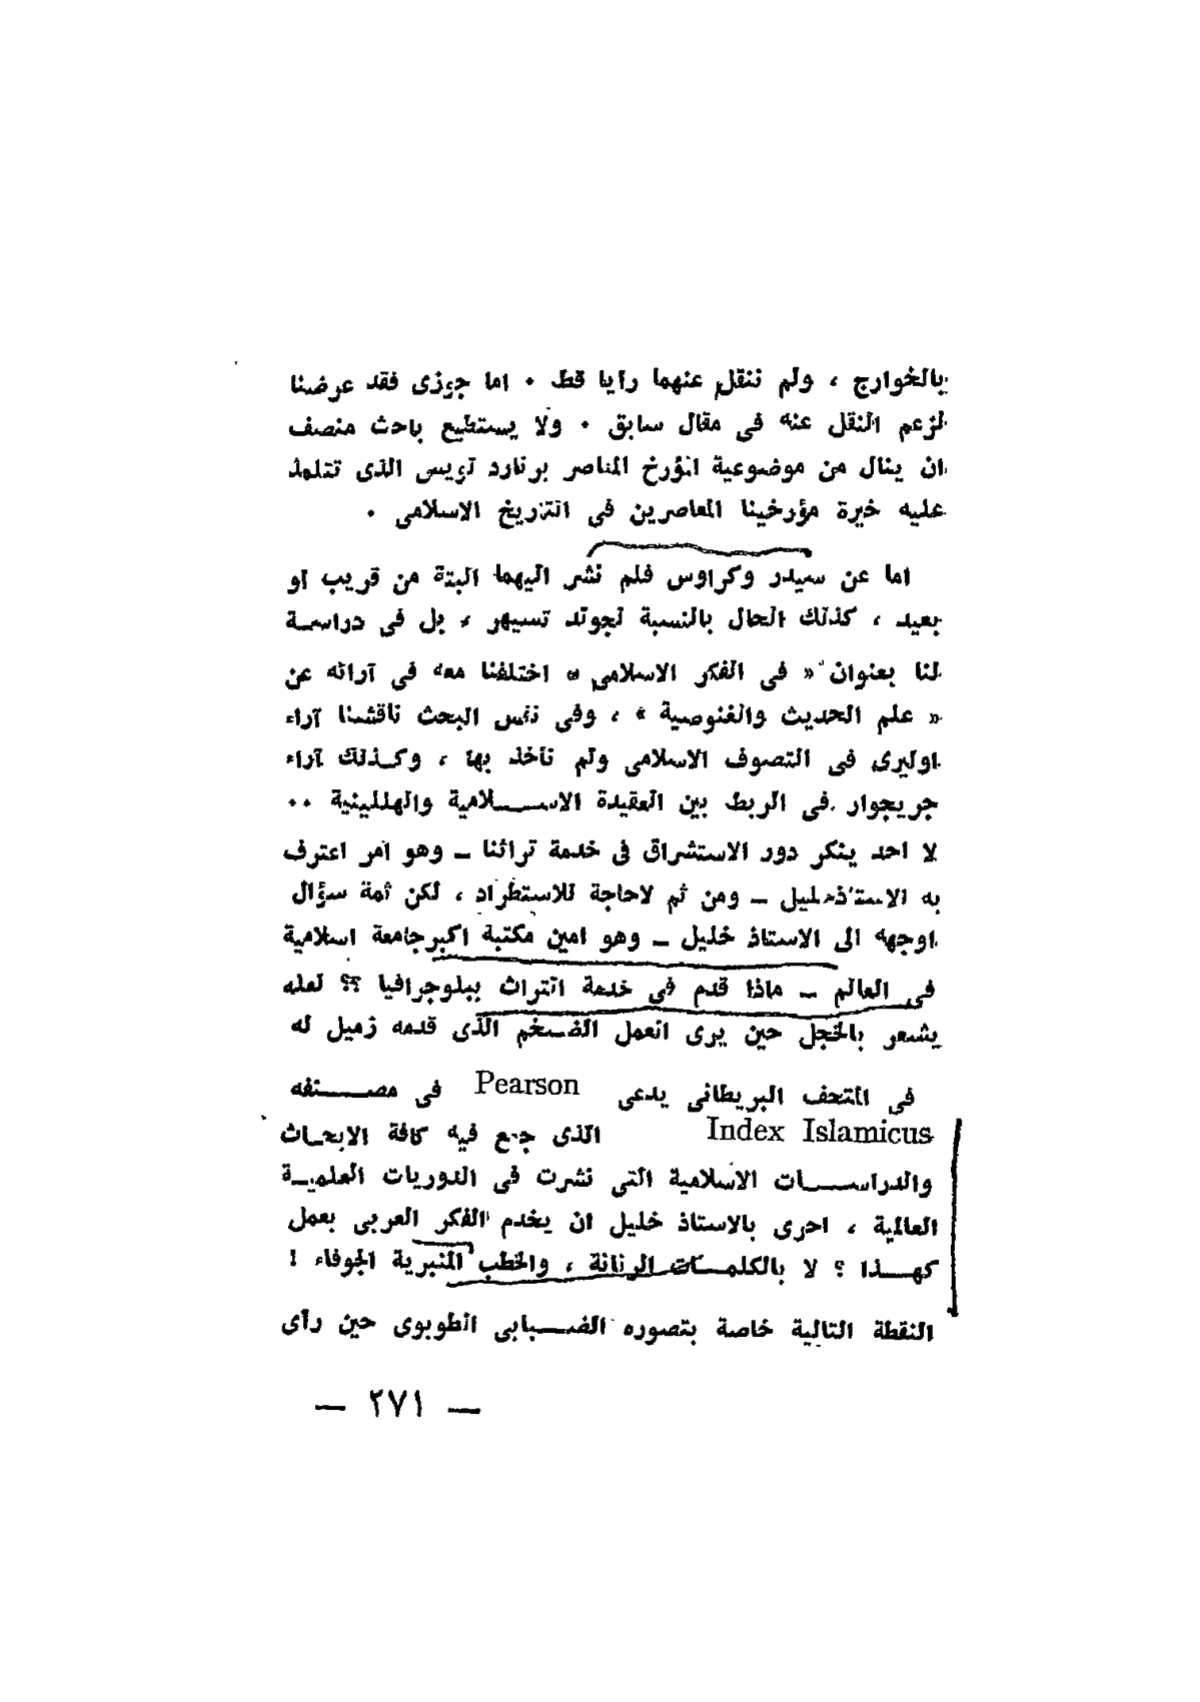 بالخوارج ، ولم ننقل عنهما رايا قط . اما جوزى فقد عرضنا
لزعم النقل عنه فى مقال سابق . ولا يستطيع باحث منصف
ان ينال من موضوعية المؤرخ المعاصر برنارد لويس الذى تتلمذ
عليه خيرة مؤرخينا المعاصرين فى التاريخ الاسلامى .
اما عن سيدر وكراوس فلم نشر اليهما البتة من قريب او
بعيد ، كذلك الحال بالنسبة لجولد تسيهر ، بل فى دراسة
لنا بعنوان « فى الفكر الاسلامى » اختلفنا معه فى آرائه عن
« علم الحديث والغنوصية » ، وفى نفس البحث ناقشنا آراء
اوليرى فى التصوف الاسلامى ولم نأخذ بها ، وكذلك آراء
جريجوار فى الربط بين العقيدة الاسلامية والهللينية ..
لا احد ينكر دور الاستشراق فى خدمة تراثنا ــ وهو امر اعترف
به الاستاذ خليل ــ ومن ثم لاحاجة للاستطراد ، لكن ثمة سؤال
اوجهه الى الاستاذ خليل ــ وهو امين مكتبة اكبر جامعة اسلامية
فى العالم ــ ماذا قدم فى خدمة التراث ببلوجرافيا ؟؟ لعله
يشعر بالخجل حين يرى العمل الضخم الذى قدمه زميل له
فى المتحف البريطانى يدعى Pearson فى مصنفه
Index Islamicus الذى جمع فيه كافة الابحاث
والدراسات الاسلامية التى نشرت فى الدوريات العلمية
العالمية ، احرى بالاستاذ خليل ان يخدم الفكر العربى بعمل
كهذا ؟ لا بالكلمات الرنانة ، والخطب المنبرية الجوفاء !
النقطة التالية خاصة بتصوره الضبابى الطوبوى حين رأى
— ٢٧١ —